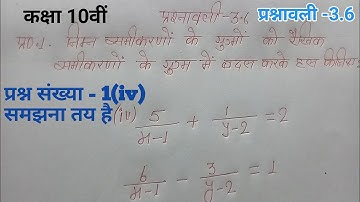 कक्षा 10वीं
प्रश्नावली-3.6
प्रश्नावली -3.6
प्र०न1. निम्न समीकरणों के युग्मों को रैखिक
समीकरणों के युग्म में बदल करके हल कीजिए:
प्रश्न संख्या - 1(iv)
समझना तय है
(iv) 5/x-1 + 1/y-2 = 2
6/x-1 - 3/y-2 = 1